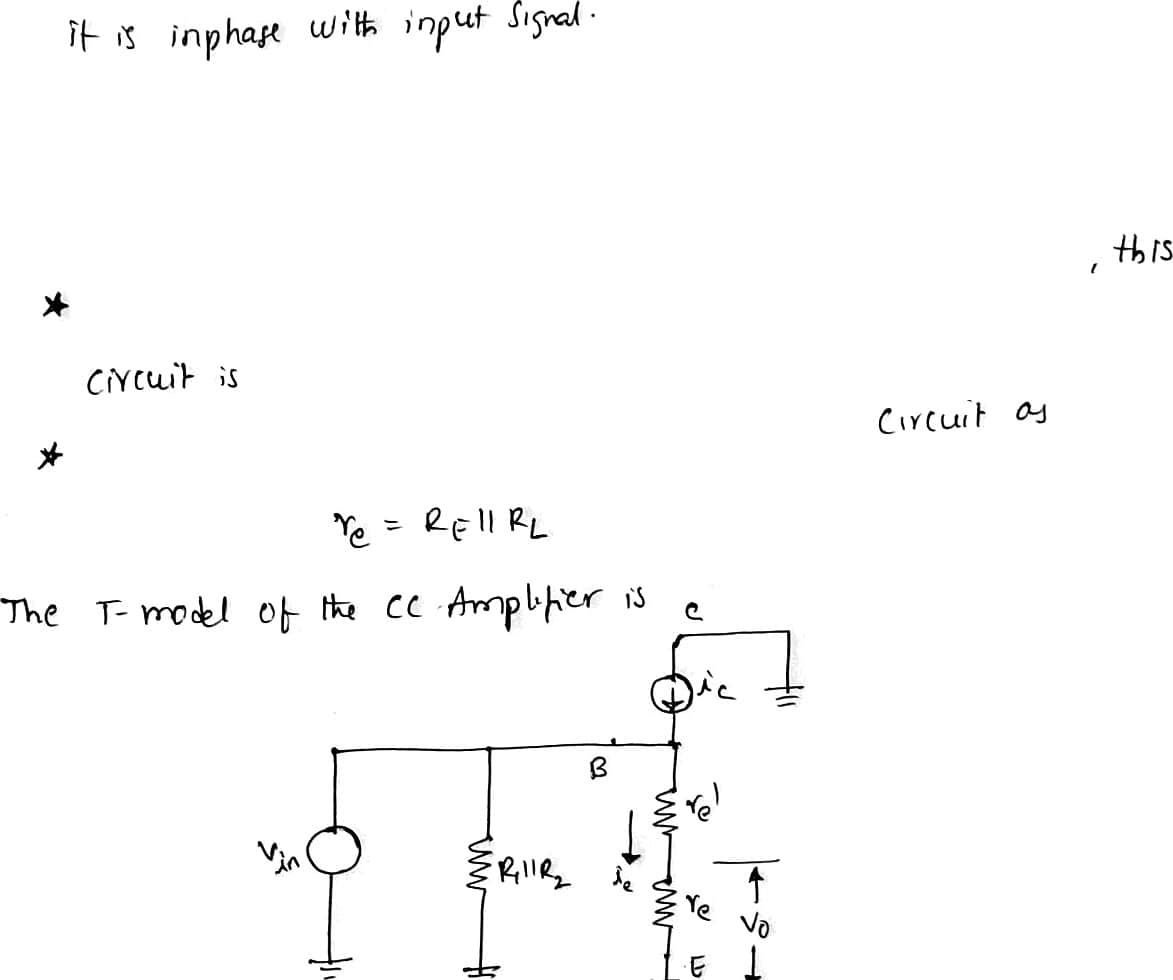 it is inphase with input signal.
, this
★
circuit is
circuit as
★
re = RE || RL
The T-model of the CC Amplifier is
c
ic
B
re'
Vin
R1||R2
ie
re
Vo
E